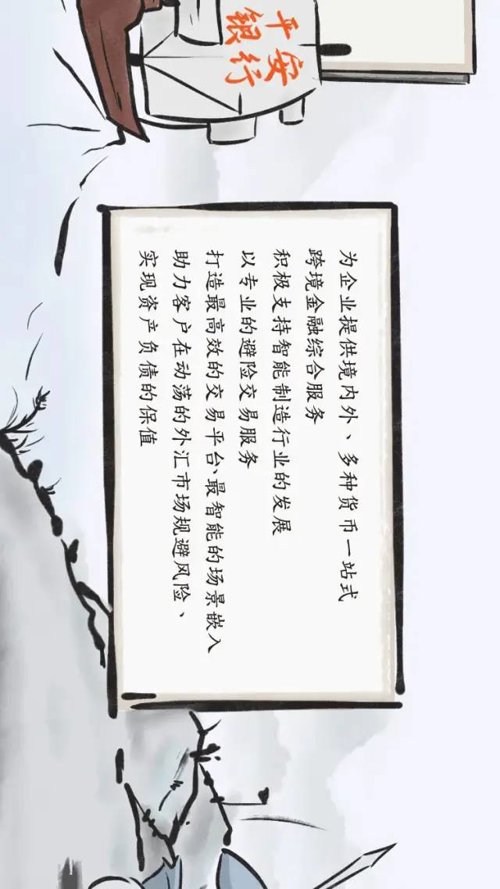 平安
银行
为企业提供境内外、多种货币一站式
跨境金融综合服务
积极支持智能制造行业的发展
以专业的避险交易服务
打造最高效的交易平台、最智能的场景嵌入
助力客户在动荡的外汇市场规避风险、
实现资产负债的保值